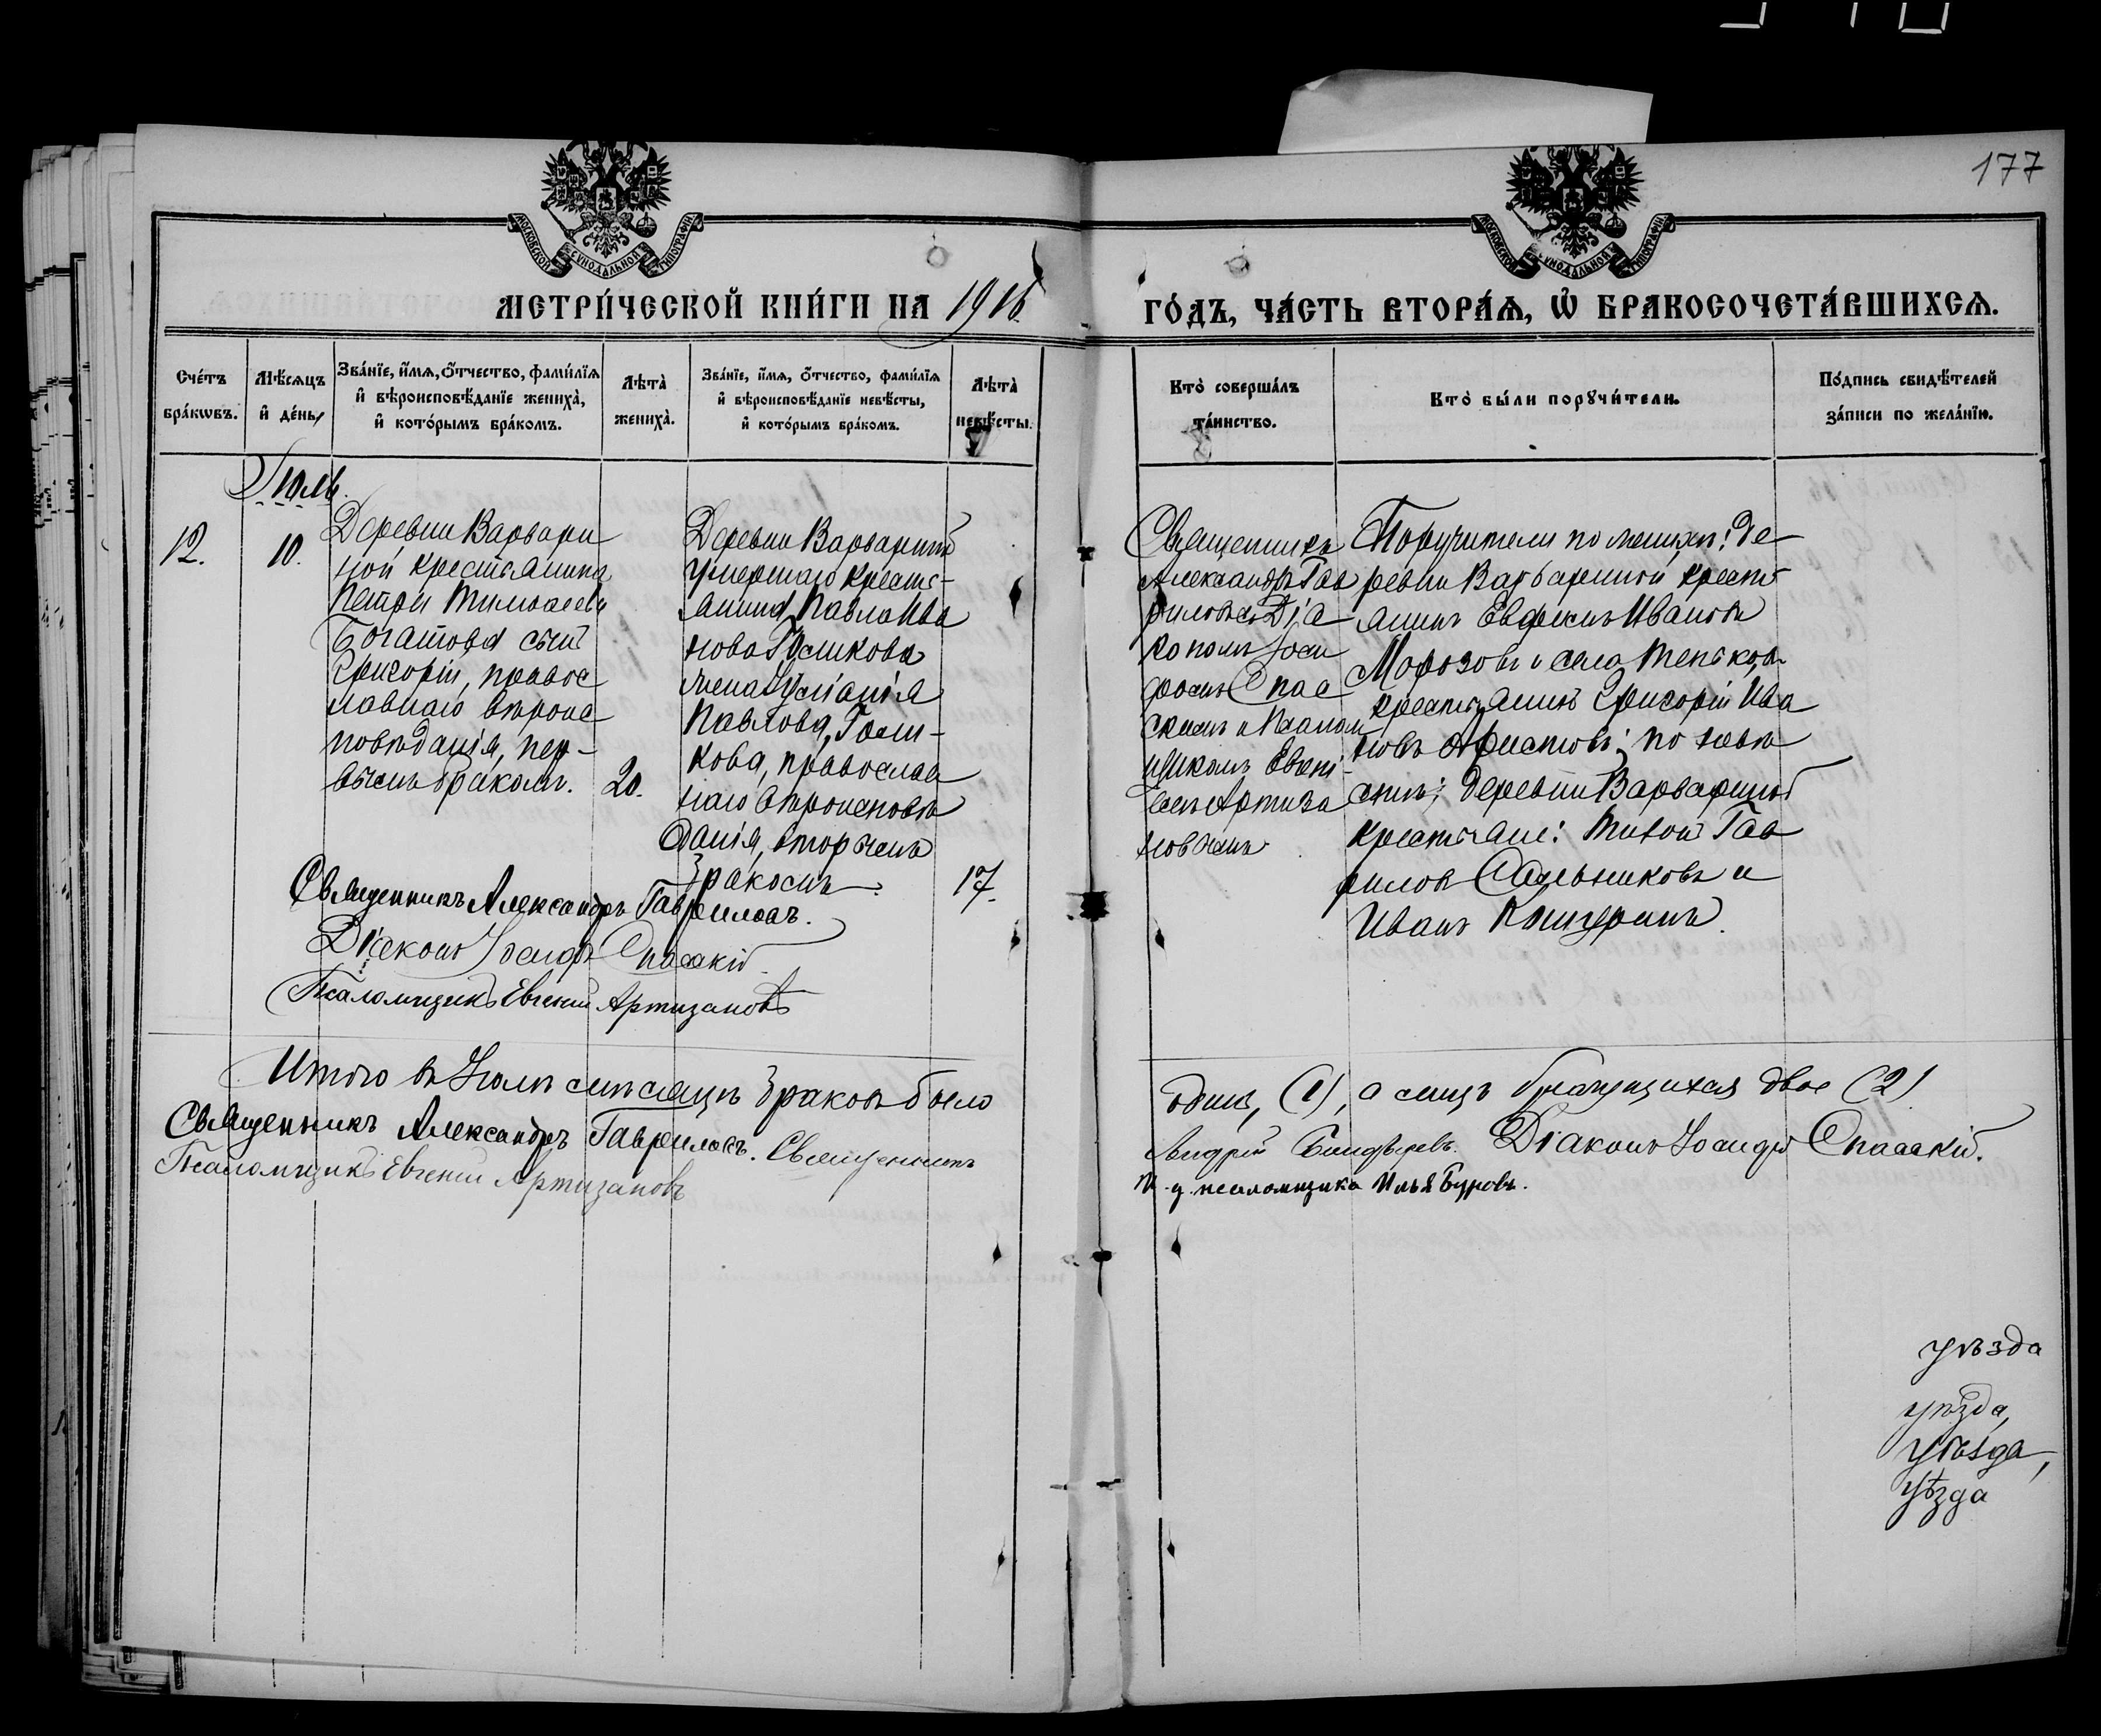 177
МОСКОВСКОЙ СѴНОДАЛЬНОЙ ТИПОГРАФІИ
МОСКОВСКОЙ СѴНОДАЛЬНОЙ ТИПОГРАФІИ
МЕТРИ́ЧЕСКОЙ КНИ́ГИ НА 1916 ГО́ДЪ, ЧА́СТЬ ВТОРА́Ѧ, Ѡ БРАКОСОЧЕТА́ВШИХСѦ.
Сче́тъ
бра́кѡвъ.
Мѣ́сѧцъ
и҆ де́нь
Зва́нїе, и҆́мѧ, ѻ҆́тчество, фами́лїѧ
и҆ вѣроисповѣ́данїе жениха̀,
и҆ кото́рымъ бра́комъ.
Лѣ́та̀
жениха̀.
Зва́нїе, и҆́мѧ, ѻ҆́тчество, фами́лїѧ
и҆ вѣроисповѣ́данїе невѣ́сты,
и҆ кото́рымъ бра́комъ.
Лѣ́та̀
невѣ́сты.
Кто̀ соверша́лъ
та́инство.
Кто̀ бы́ли порꙋчи́тели.
По́дпись свидѣ́телей
за́писи по жела́нїю.
Іюль.
12.
10.
Деревни Варвари
ной крестьянина
Петра Тимофеева
Богатова сынъ
Григорій, правос
лавнаго вѣроис
повѣданія, пер-
вымъ бракомъ.
20.
Деревни Варариной
умершаго кресть-
янина Павла Ива
нова Голикова
жена
Павлова, Голи-
кова, православ
наго вѣроисповѣ
данія, вторымъ
бракомъ.
17.
Священникъ
Александръ Гав
риловъ съ Діа
кономъ Іоси
фомъ Спас
скимъ и Псалом
щикомъ Евгені
емъ Артиза
новымъ
Поручители по женихѣ: де
ревни Варвариной кресть
янинъ Иванов
Морозовъ и села
крестьянинъ Григорій Ива
новъ по невѣ
стѣ: деревни Варариной
крестьяне: Тихон Гав
рилов Сальниковъ и
Иванъ
Священникъ Александръ Гавриловъ.
Діаконъ Іосифъ Спасскій
Псаломщикъ Евгеній Артизановъ
Итого въ Іюлѣ мѣсяцѣ браковъ было одинъ, (1), а лицъ брачущихся двое (2)
Священникъ Александръ Гавриловъ. Священникъ Андрей Діаконъ Іосифъ Спасскій.
Псаломщикъ Евгеній Артизановъ
И. д. псаломщика Илья Буровъ.
уѣзда
уѣзда,
уѣзда,
уѣзда